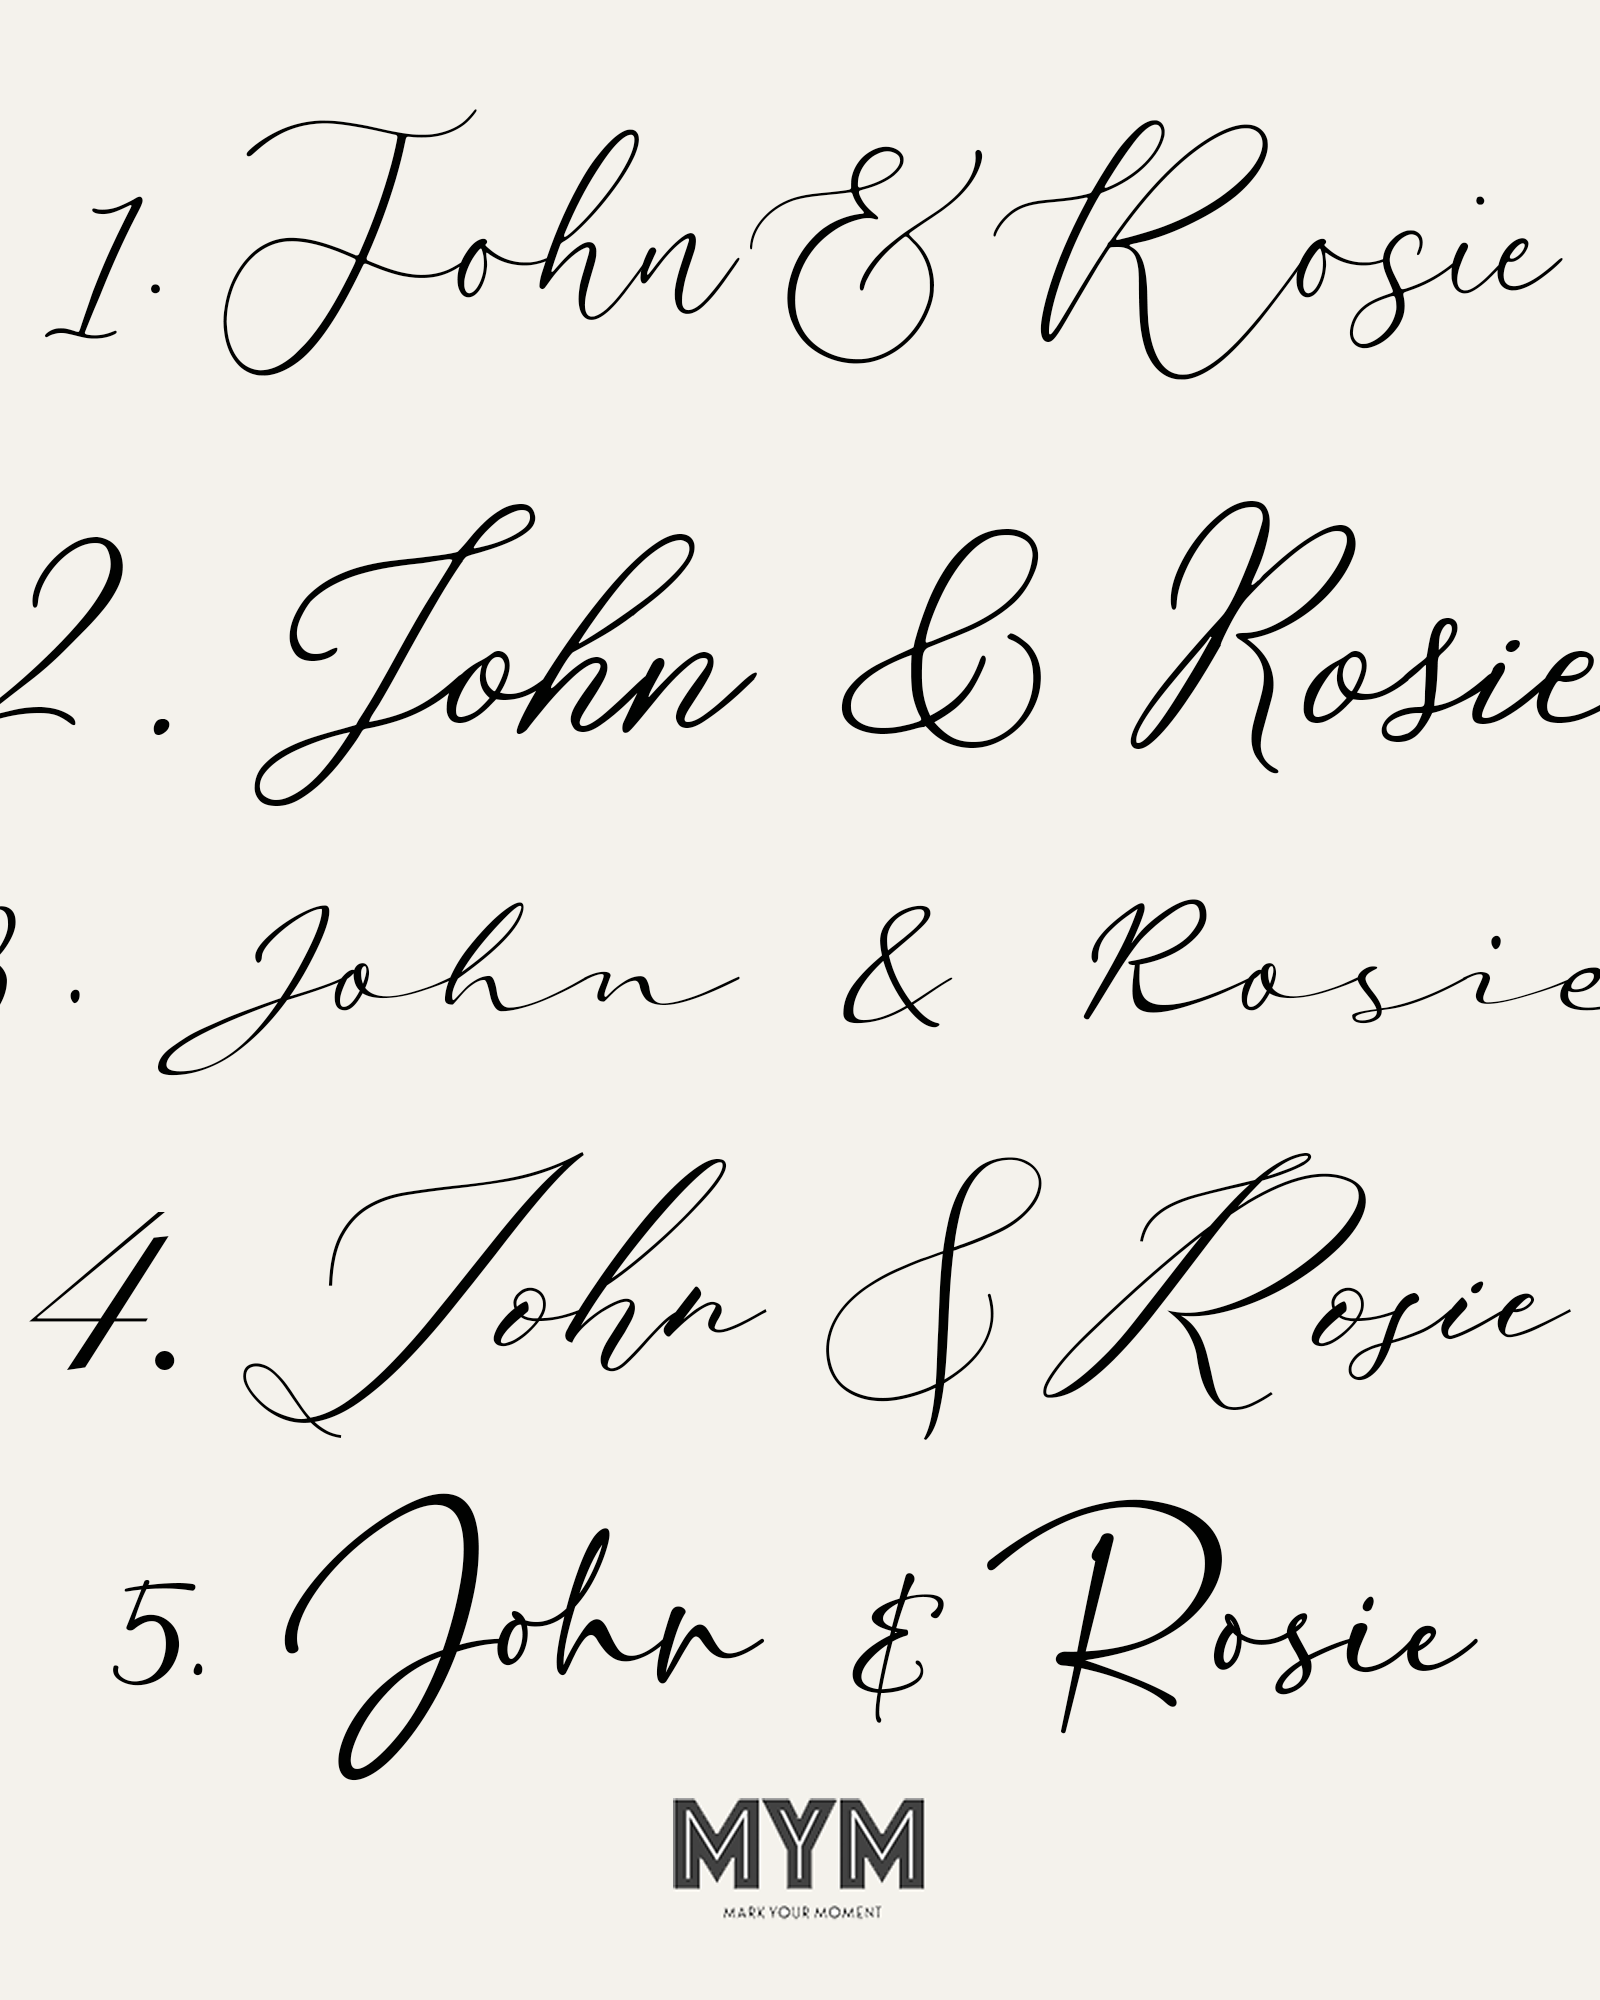 1. John & Rosie
2. John & Rosie
3. John & Rosie
4. John & Rosie
5. John & Rosie
MYM
MARK YOUR MOMENT